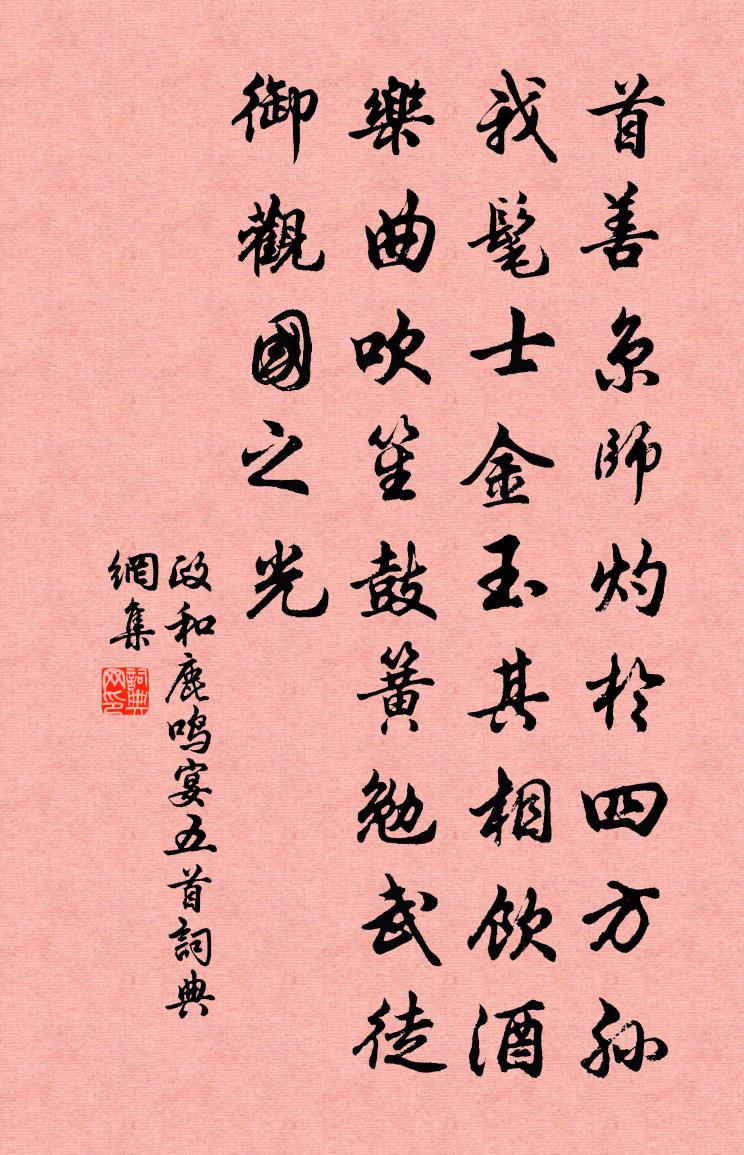 首善京師灼於四方孫
我髦士金玉其相飲酒
樂曲吹笙鼓簧勉武徒
御觀國之光
政和鹿鳴宴五首詞典
網集
詞典
网印